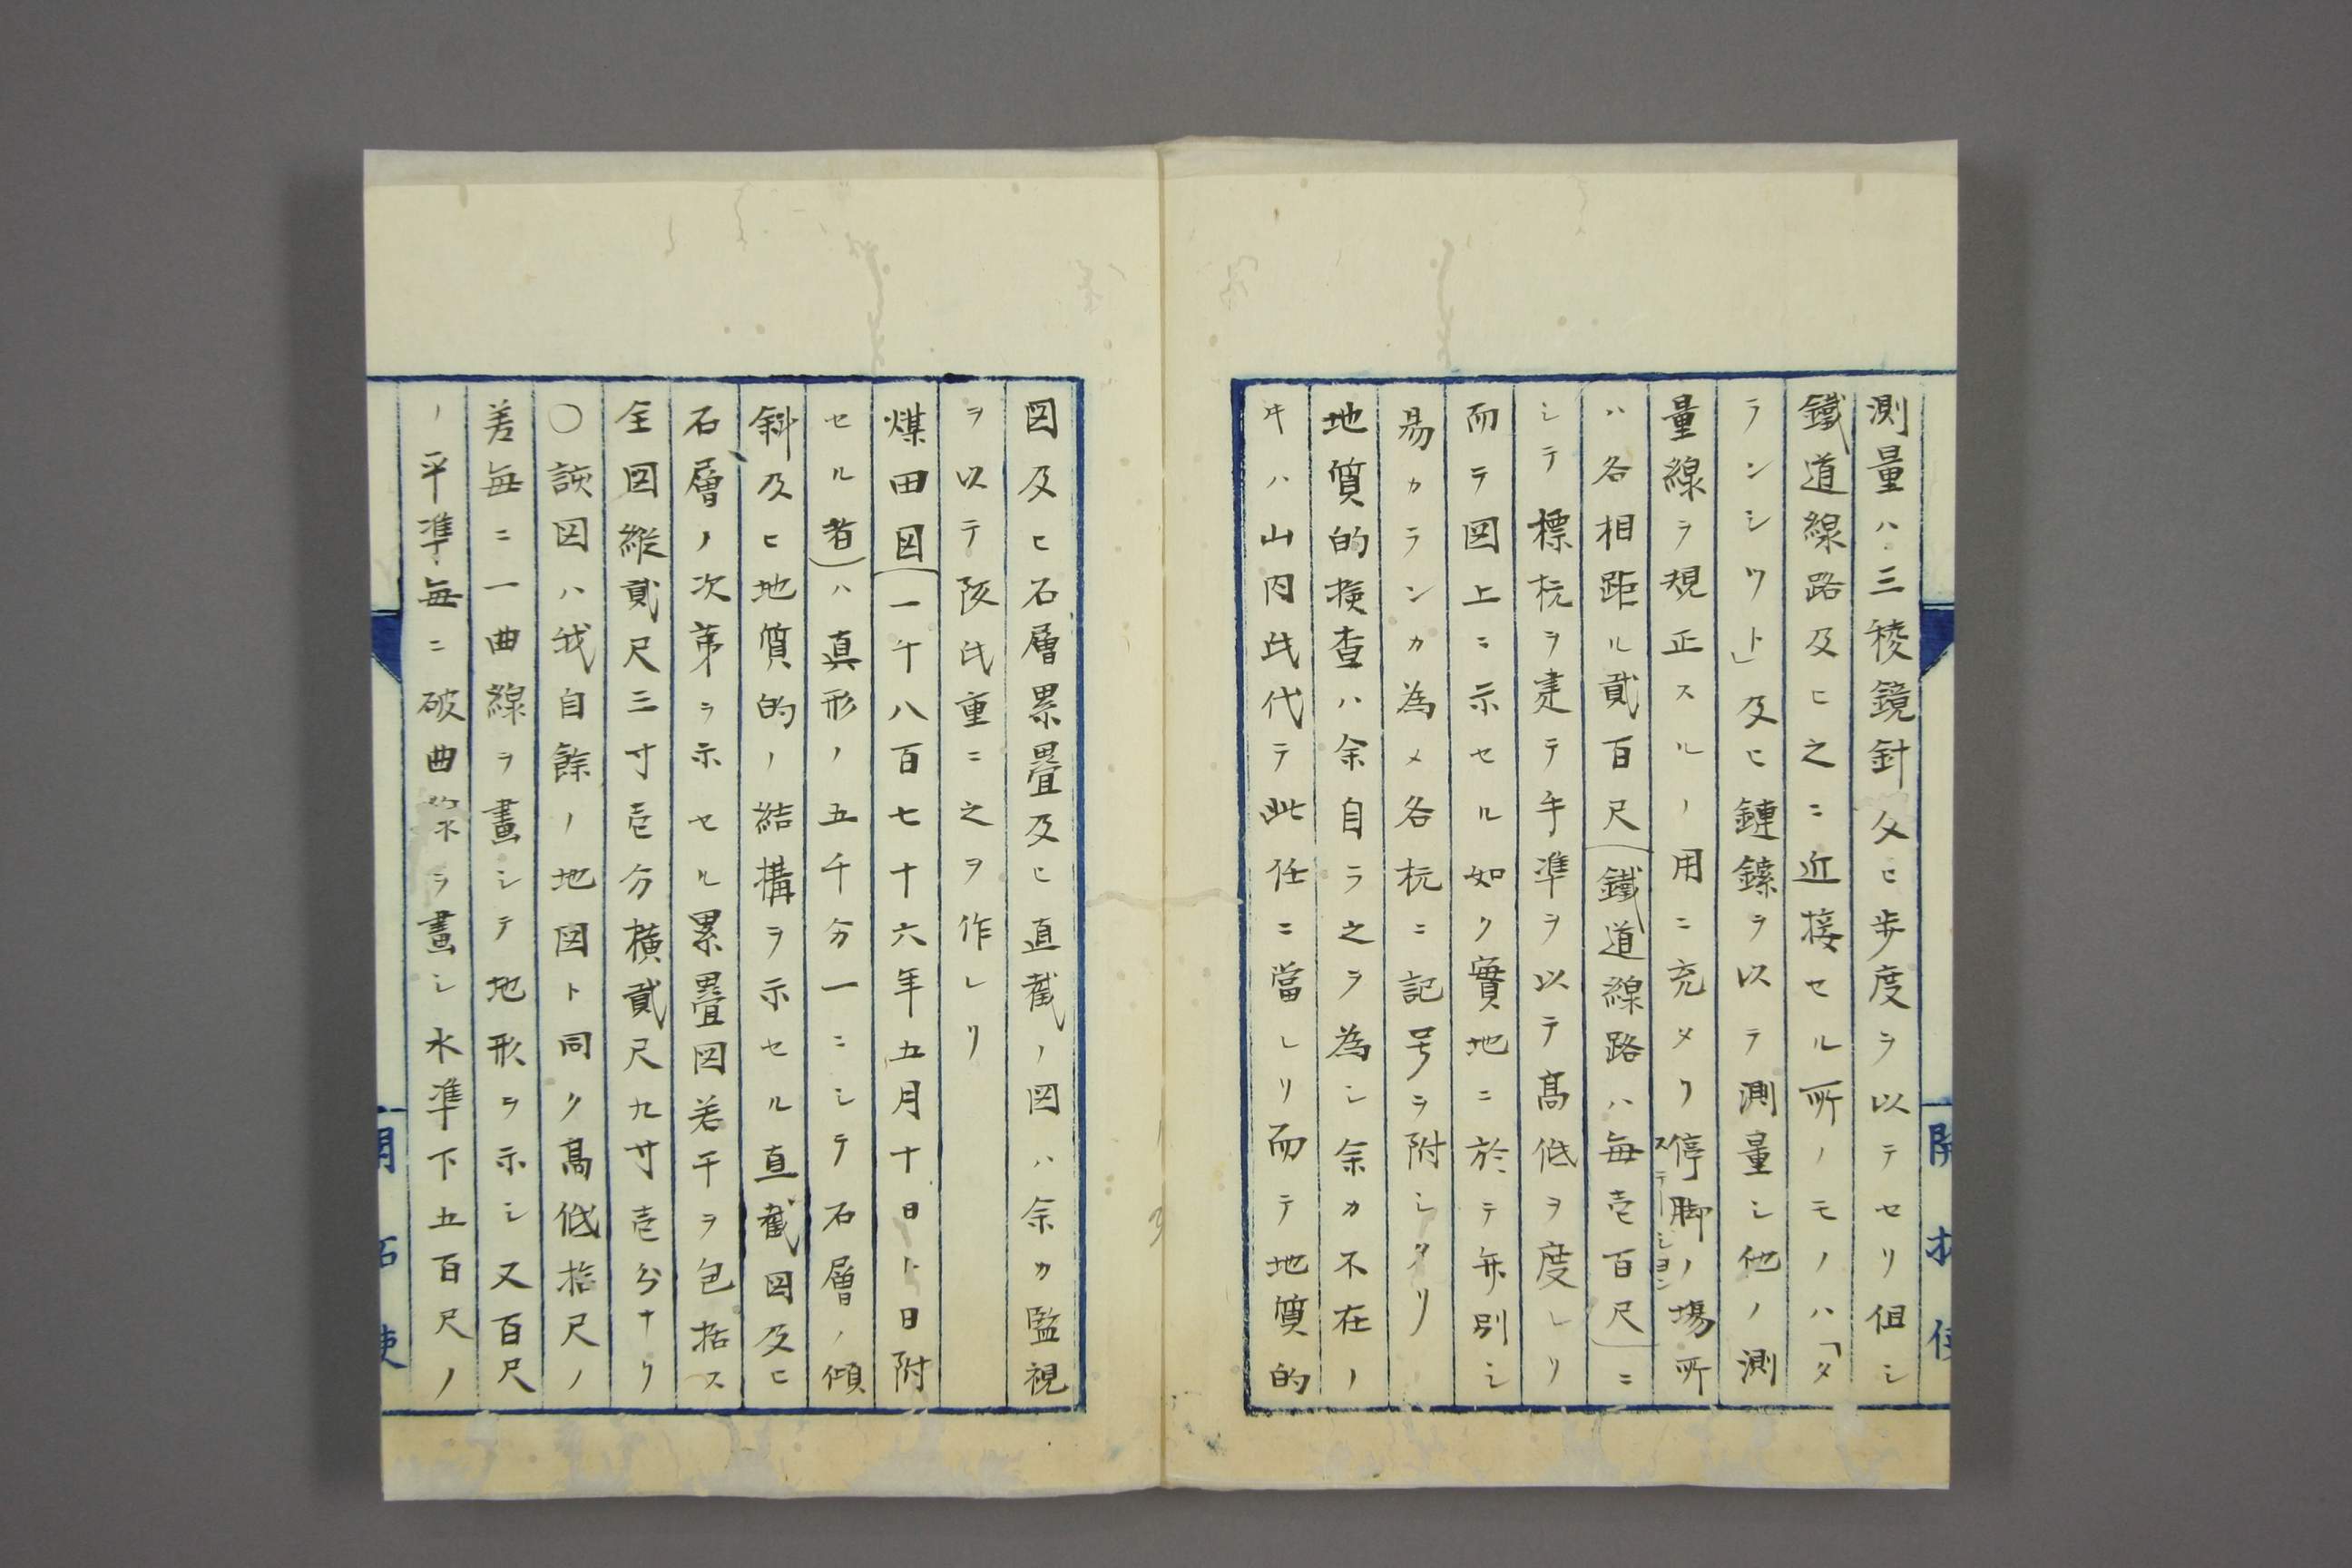 測量ハ三稜鏡針及ヒ歩度ヲ以テセリ但シ
鐵道線路及ヒ之ニ近接セル所ノモノハ「タ
ランシツト」及ヒ鏈鎍ヲ以テ測量シ他ノ測
量線ヲ規正スルノ用ニ充タリ停脚ノ場所
ステーション
ハ各相距ル貳百尺(鐵道線路ハ毎壱百尺)ニ
シテ標杭ヲ建テ手準ヲ以テ髙低ヲ度レリ
而テ図上ニ示セル如ク實地ニ於テ弁別シ
易カランカ為メ各杭ニ記号ヲ附シタリ
地質的検査ハ余自ラ之ヲ為シ余カ不在ノ
ヰハ山内氏代テ此任ニ當レリ而テ地質的
図及ヒ石層累畳及ヒ直截ノ図ハ余カ監視
ヲ以テ阪氏重ニ之ヲ作レリ
煤田図(一千八百七十六年五月十日ト日附
セル者)ハ真形ノ五千分一ニシテ石層ノ傾
斜及ヒ地質的ノ結構ヲ示セル直截図及ヒ
石層ノ次第ヲ示セル累畳図若干ヲ包括ス
全図縦貳尺三寸壱分横貳尺九寸壱分ナリ
〇該図ハ我自餘ノ地図ト同ク髙低拾尺ノ
差毎ニ一曲線ヲ畫シテ地形ヲ示シ又百尺
ノ平準毎ニ破曲線ヲ畫シ水準下五百尺ノ
開拓使
開拓使